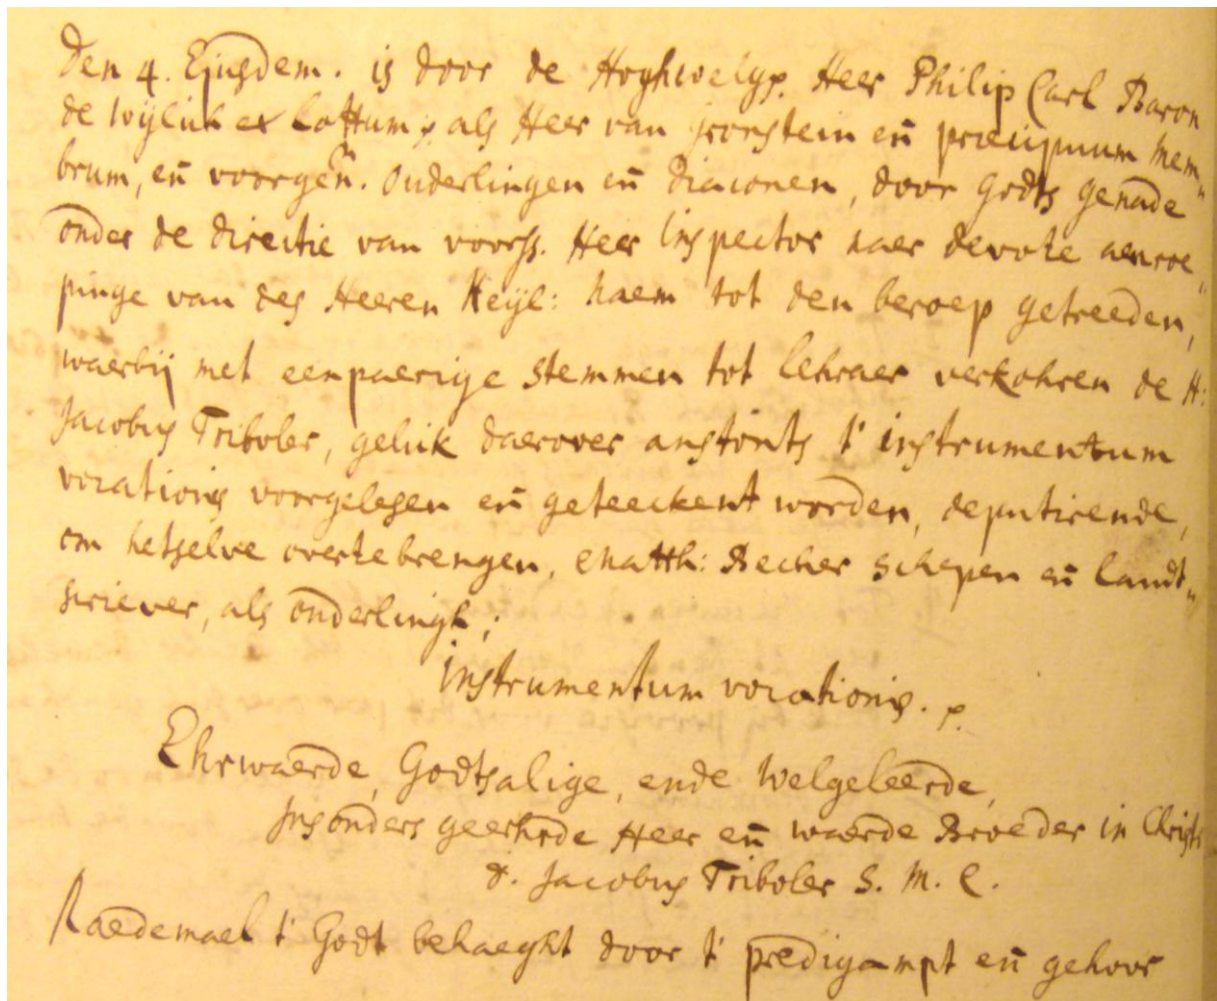 Den 4. Ejusdem. is door de Hoghwelgp. Heer Philip Carl Baron
de Wijlich et Lottum p als Heer van Gronstein en̄ præcipuum mem„
brum, en̄ voorgen̄. Ouderlingen en̄ Diaconen, door Godts genade
onder de directie van voorss. Heer Inspector naer devote aenroe„
pinge van des Heeren Heijl: naem tot den beroep getreeden,
waerbij met eenpaerige stemmen tot Lehraer verkohren de H:
Jacobus Triboler, gelik daerover anstonts t' instrumentum
vocationis voorgelesen en̄ geteeckent worden, deputirende,
om hetselve overtebrengen, Matth: Becker Schepen en̄ Landt„
scriever, als onderlingh;
Instrumentum vocationis. p.
Ehrwaerde, Godtsalige, ende Welgeleerde,
Insonders geerhrde Heer en̄ waerde Broeder in Christo
d. Jacobus Triboler S. M. C.
Naedemael t' Godt behaeght door t' predigampt en̄ gehoor